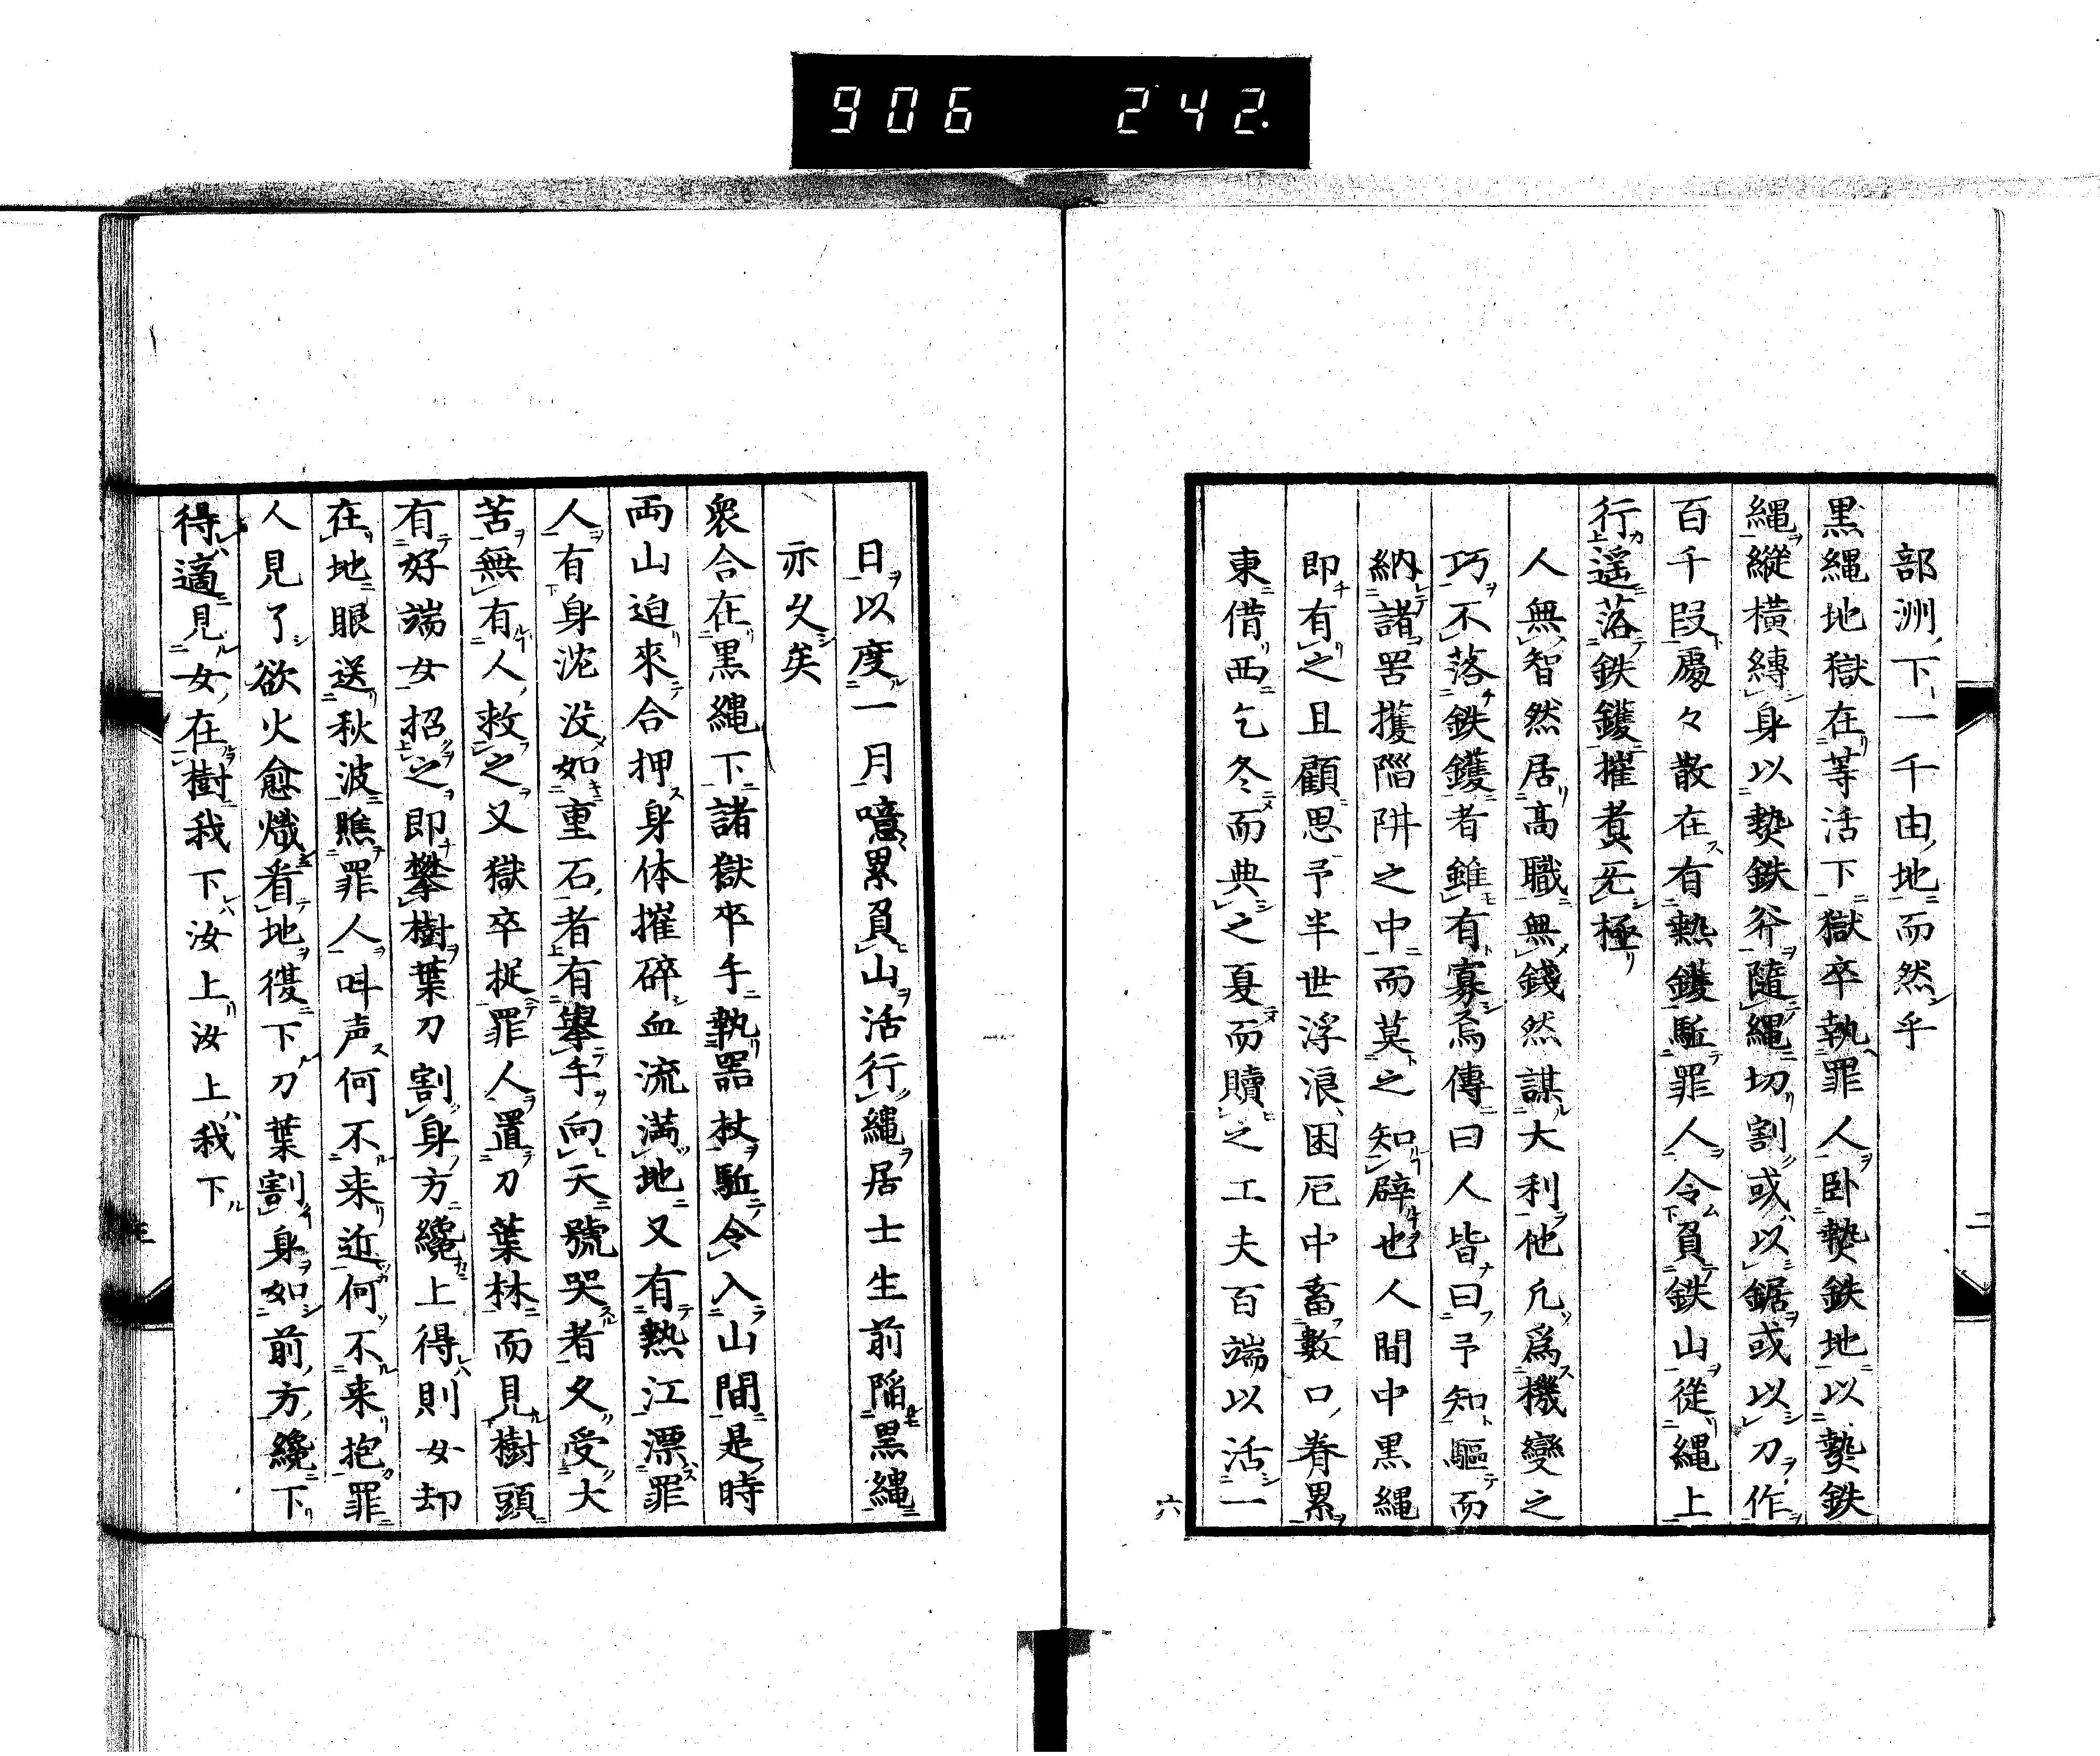 906 242.
部洲下一千由地而然乎
黒縄地獄在等活下獄卒執罪人臥𤍠鉄地以𤍠鉄
縄縦横縛身以𤍠鉄斧随縄切割或以鋸或以刀作
百千段處々散在有熱鑊駈罪人令負鉄山従縄上
行遥落鉄鑊摧煑无極
人無智然居高職無錢然謀大利他凢爲機變之
巧不落鉄鑊者雖有寡焉傳曰人皆曰予知驅而
納諸罟擭陥阱之中而莫之知辟也人間中黒縄
即有之且顧思予半世浮浪困厄中畜數口眷累
東借西乞冬而典之夏而贖之工夫百端以活一
六
二
日以度一月噫累負山活行縄居士生前陥黒縄
亦久矣
衆合在黒縄下諸獄卒手執器杖駈令入山間是時
両山迫來合押身体摧碎血流満地又有熱江漂罪
人有身沈没如重石者有擧手向天號哭者久受大
苦無有人救之又獄卒捉罪人置刀葉林而見樹頭
有好端女招之即攀樹葉刀割身方纔上得則女却
在地眼送秋波瞧罪人呌声何不来近何不来抱罪
人見了欲火愈熾看地復下刀葉割身如前方纔下
得適見女在樹我下汝上汝上我下